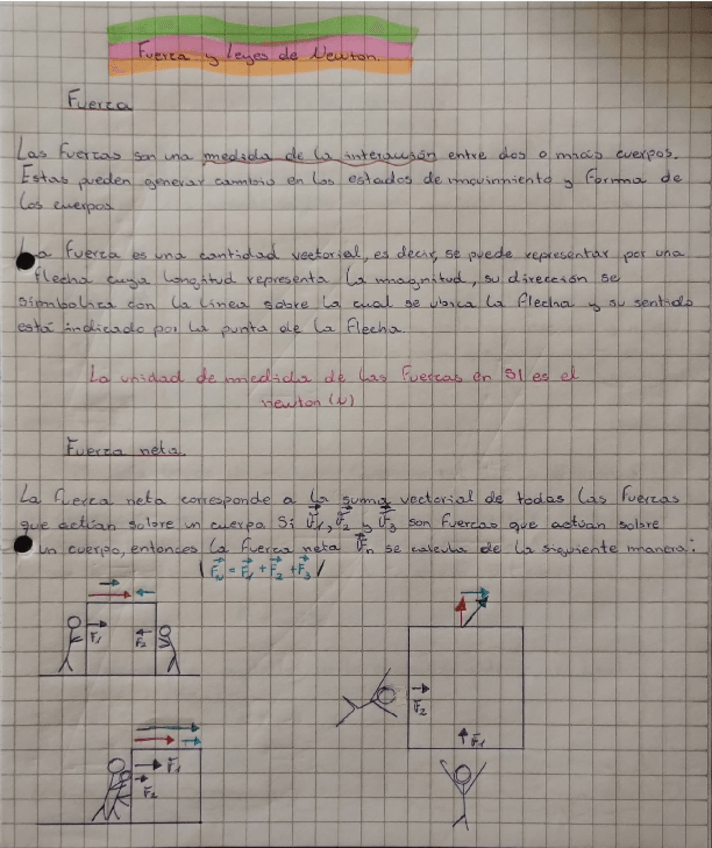 Fuerza y Leyes de Newton.
Fuerza
Las fuerzas son una medida de la interacción entre dos o más cuerpos.
Estas pueden generar cambio en los estados de movimiento y forma de
los cuerpos
La fuerza es una cantidad vectorial, es decir, se puede representar por una
flecha cuya longitud representa la magnitud, su dirección se
simboliza con la línea sobre la cual se ubica la flecha y su sentido
está indicado por la punta de la flecha.
La unidad de medida de las fuerzas en SI es el
newton (N)
Fuerza neta.
La fuerza neta corresponde a la suma vectorial de todas las fuerzas
que actúan sobre un cuerpo. Si F⃗1, F⃗2 y F⃗3 son fuerzas que actúan sobre
un cuerpo, entonces la fuerza neta F⃗n se calcula de la siguiente manera:
| F⃗N = F⃗1 + F⃗2 + F⃗3 /
F⃗1 F⃗2
F⃗2
F⃗1
F⃗1
F⃗2